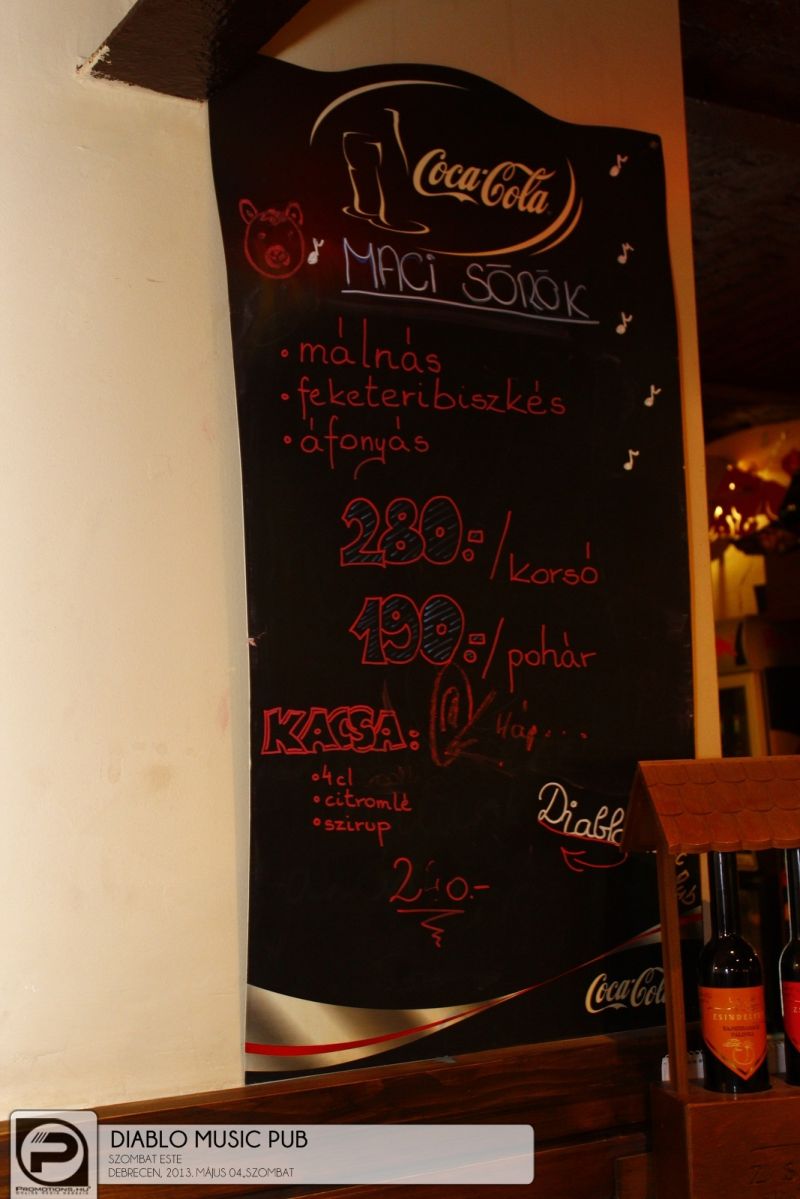 Coca-Cola
MACi SÖRÖK
• málnás
• feketeribiszkés
• áfonyás
280.-/korsó
190.-/pohár
KACSA: Háp...
• 4cl
• citromlé
• szirup
Diablo
Coca-Cola
ZSINDELYES
DIABLO MUSIC PUB
SZOMBAT ESTE
DEBRECEN, 2013. MÁJUS 04.,SZOMBAT
PROMOTIONS.HU